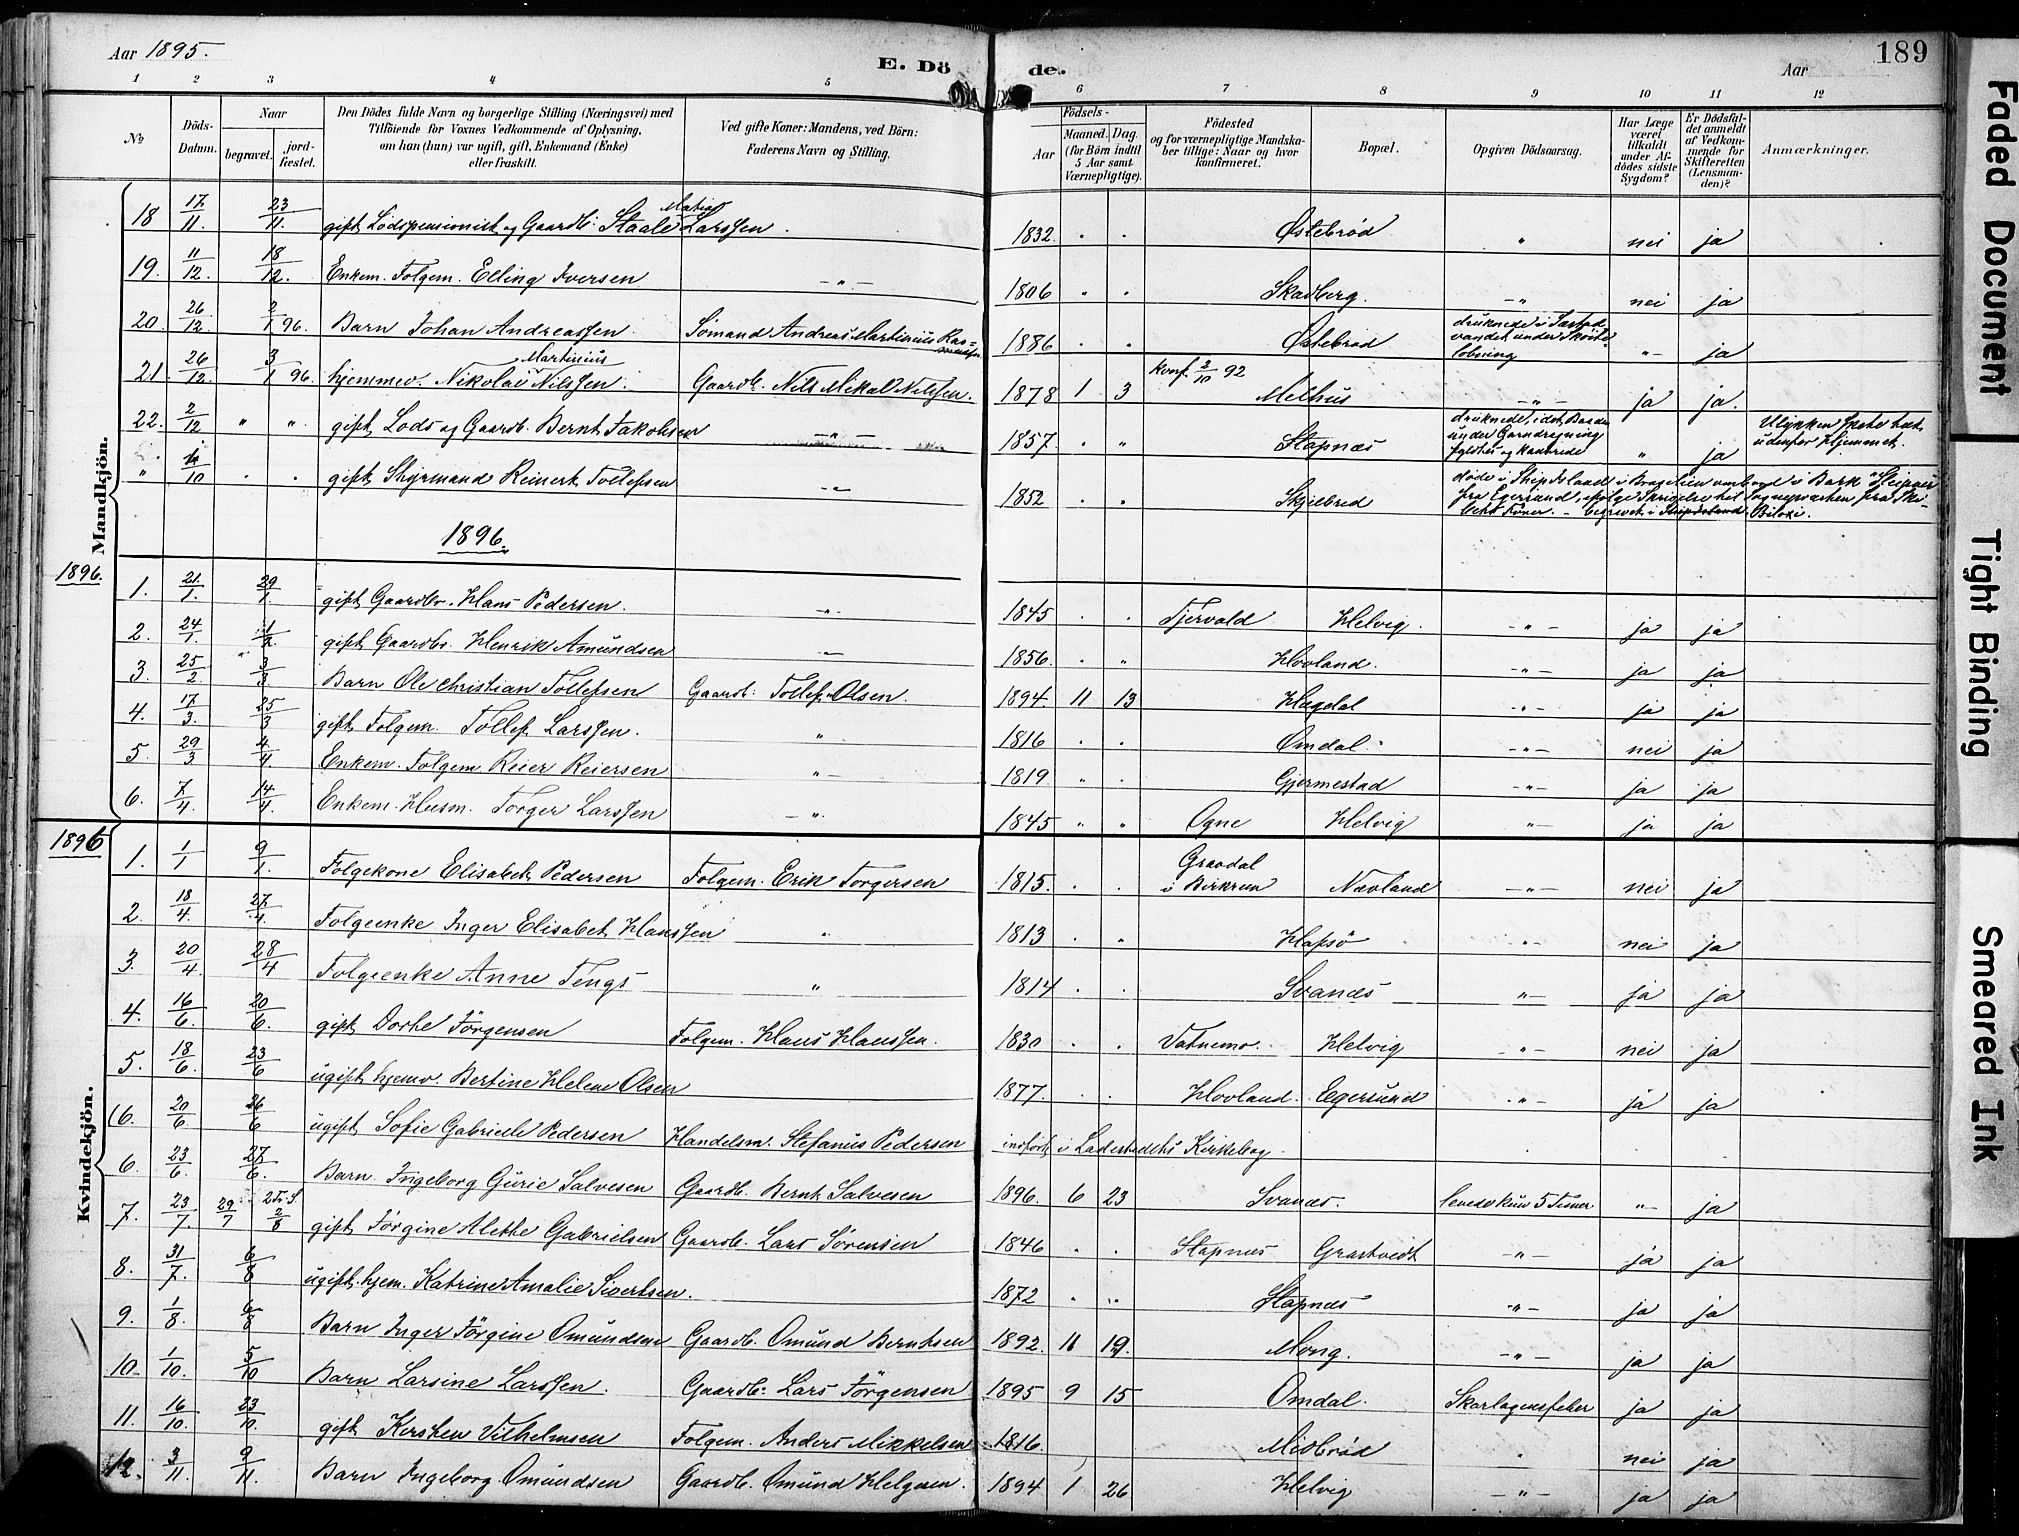 Aar 1895.
E. Döde.
Aar
189
1 2 3 4 5 6 7 8 9 10 11 12
No
Döds-Datum.
Naar
begravet. jordfæstet.
Den Dödes fulde Navn og borgerlige Stilling (Næringsvei) med
Tilföiende for Voxnes Vedkommende af Oplysning,
om han (hun) var ugift, gift, Enkemand (Enke)
eller fraskilt.
Ved gifte Koner: Mandens, ved Börn:
Faderens Navn og Stilling.
Födsels-
Aar Maaned. Dag.
(for Börn indtil
5 Aar samt
Værnepligtige).
Födested
og for værnepligtige Mandska-
ber tillige: Naar og hvor
konfirmeret.
Bopæl.
Opgiven Dödsaarsag.
Har Læge
været
tilkaldt
under Af-
dödes sidste
Sygdom?
Er Dödsfal-
det anmeldt
af Vedkom-
mende for
Skifteretten
(Lensman-
den)?
Anmærkninger.
Mandkjön.
18 17/11. 23/11. gift Lodspensionist og Gaardb. Staale Matias Larssen 1832 Østebrød " nei ja
19. 11/12. 18/12. Enkem. Folgem. Elling Iversen -"- 1806 Skadberg. -"- nei ja
20. 26/12 2/1 96. Barn Johan Andreassen Sömand Andreas Martinius Rasmussen 1886 Østebrød druknede i vandet under Skøite- løbning -"- ja
21. 26/12. 3/1 96. hjemmev. Nikolai Martinius Nilssen. Gaardb. Nils Mikal Nilssen. 1878 1 3 konf. 2/10 92 Melhus -"- ja ja.
22. 2/12 " " gift Lods og Gaardb. Bernt Jakobsen -"- 1857. Stapnæs druknede, idet Baaden under Garndragning fyldtes og kantrede " ja Ulykken skete tæt udenfor Hjemmet.
" /10 gift Styrmand Reinert Tollefsen -"- 1852 Skjelbred døde i Ship Island i ombord i Bark "Sleipner" fra Egersund, ifølge Skrivelse til Sognepræsten fra begravet i Biloxi.
1896.
1896.
1. 21/1. 29/1. gift Gaardbr. Hans Pedersen. -"- 1845 Tjervald Helvig. -"- ja ja
2. 24/1. 1/2 gift Gaardbr. Henrik Amundsen -"- 1856. Hovland. -"- ja ja
3. 25/2 3/3. Barn Ole Christian Tollefsen Gaardb. Tollef Olsen. 1894 11 13 Hegdal -"- ja ja
4. 17/3. 25/3 gift Folgem. Tollef Larssen. " 1816 Omdal. -"- nei ja
5. 29/3 4/4. Enkem. Folgem. Reier Reiersen "- 1819. Gjermestad -"- ja ja
6. 7/4. 14/4. Enkem. Husm. Torger Larssen -"- 1845 Ogne Helvig "- ja ja
1896
Kvindekjön.
1. 1/1 9/1. Folgekone Elisabet Pedersen Folgem. Erik Torgersen 1815. Gravdal i Birkrem Nævland -"- nei ja
2. 18/4. 27/4. Folgeenke Inger Elisabet Hanssen " 1813 Hafsö "- nei ja
3. 20/4. 28/4 Folgeenke Anne Tengs " 1814 Svanæs "- ja ja
4. 16/6. 20/6. gift Dorte Jörgensen Folgem. Hans Hanssen. 1830 Vatnemo. Helvig "- nei ja
5. 18/6. 23/6 ugift hjemv. Bertine Helene Olsen 1877. Hovland. Egersund "- ja ja
(6. 20/6 26/6 ugift Sofie Gabriele Pedersen Handelsm. Stefanus Pedersen indført i Ladestedets Kirkebog
6. 23/6. 27/6. Barn Ingeborg Gurie Salvesen Gaardb. Bernt Salvesen 1896. 6 23 Svanæs. levede kun 5 Timer "- ja
7. 23/7. 29/7 2/8 gift Jørgine Alette Gabrielsen Gaardb. Lars Sörensen 1846 Stapnæs Grastvedt -"- ja ja
8. 31/7. 6/8 ugift hjem. Katrine Amalie Sivertsen. 1872 Stapnæs -"- ja ja
9. 1/8. 6/8 Barn Inger Jörgine Omundsen Gaardb. Omund Berntsen 1892. 11 19. Mong. -"- ja ja
10. 1/10. 5/10 Barn Larsine Larssen. Gaardb. Lars Jörgensen 1895 9 15 Omdal. Skarlagensfeber ja ja
11. 16/10. 23/10. gift Kersten Vilhelmsen Folgem. Anders Mikkelsen 1816. Midbrød " nei ja
12. 3/11. 9/11. Barn Ingeborg Omundsen Gaardb. Omund Helgesen. 1894 1 26 Helvig -"- ja ja
Faded Document
Tight Binding
Smeared Ink